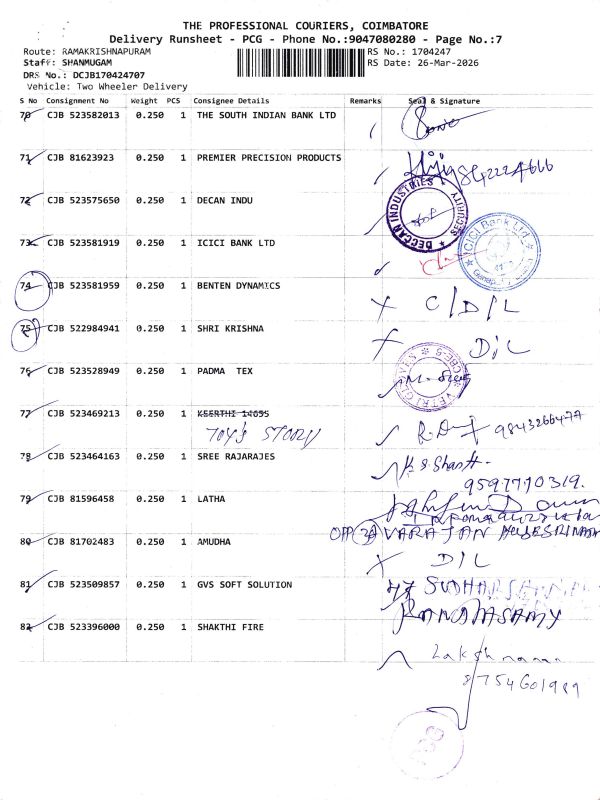 THE PROFESSIONAL COURIERS, COIMBATORE
Delivery Runsheet - PCG - Phone No.:9047080280 - Page No.:7
Route: RAMAKRISHNAPURAM RS No.: 1704247
Staff: SHANMUGAM RS Date: 26-Mar-2026
DRS No.: DCJB170424707
Vehicle: Two Wheeler Delivery
S No Consignment No Weight PCS Consignee Details Remarks Seal & Signature
70 CJB 523582013 0.250 1 THE SOUTH INDIAN BANK LTD
71 CJB 81623923 0.250 1 PREMIER PRECISION PRODUCTS
72 CJB 523575650 0.250 1 DECAN INDU
DECCAN INDUSTRIES SECURITY
73 CJB 523581919 0.250 1 ICICI BANK LTD
ICICI Bank Ltd.
74 CJB 523581959 0.250 1 BENTEN DYNAMICS C/D/L
75 CJB 522984941 0.250 1 SHRI KRISHNA D/L
76 CJB 523528949 0.250 1 PADMA TEX
77 CJB 523469213 0.250 1 KEERTHI 14695
TOY'S STOORY 9843266477
78 CJB 523464163 0.250 1 SREE RAJARAJES
9597790319.
79 CJB 81596458 0.250 1 LATHA
OPP
80 CJB 81702483 0.250 1 AMUDHA D/L
81 CJB 523509857 0.250 1 GVS SOFT SOLUTION
82 CJB 523396000 0.250 1 SHAKTHI FIRE
8754601989